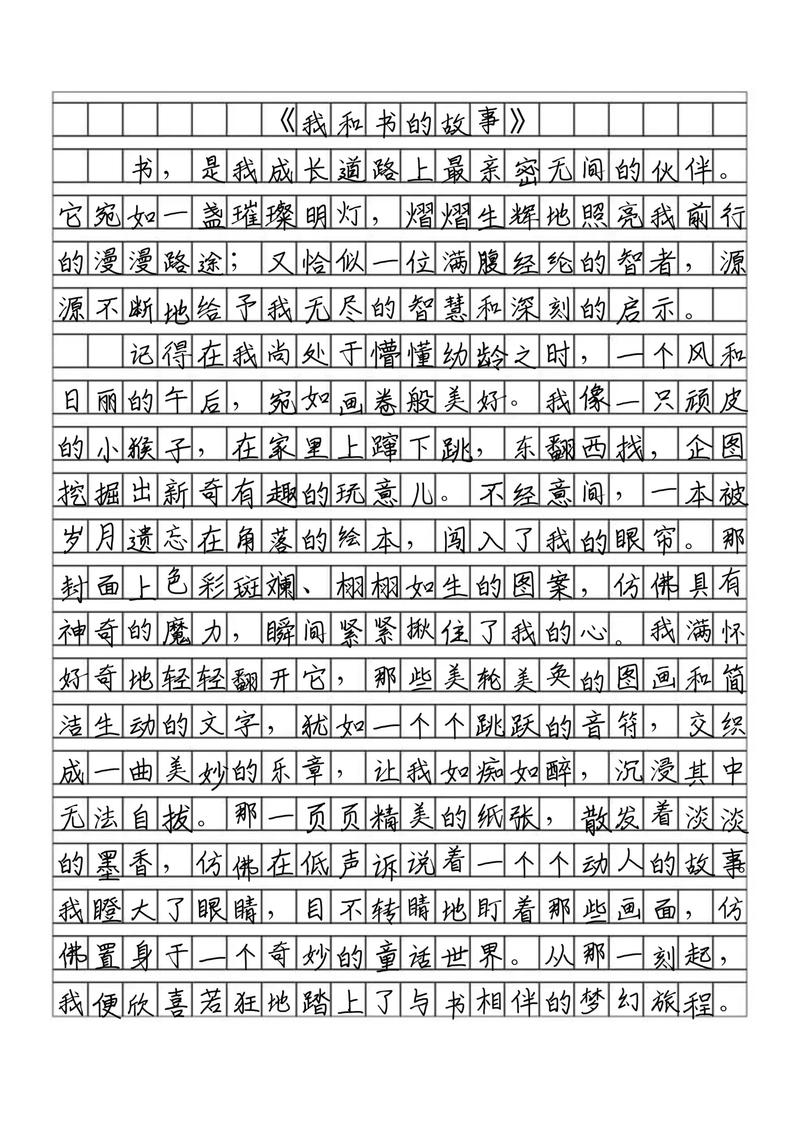 《我和书的故事》
书，是我成长道路上最亲密无间的伙伴。
它宛如一盏璀璨明灯，熠熠生辉地照亮我前行
的漫漫路途；又恰似一位满腹经纶的智者，源
源不断地给予我无尽的智慧和深刻的启示。
记得在我尚处于懵懂幼龄之时，一个风和
日丽的午后，宛如画卷般美好。我像一只顽皮
的小猴子，在家里上蹿下跳，东翻西找，企图
挖掘出新奇有趣的玩意儿。不经意间，一本被
岁月遗忘在角落的绘本，闯入了我的眼帘。那
封面上色彩斑斓、栩栩如生的图案，仿佛具有
神奇的魔力，瞬间紧紧揪住了我的心。我满怀
好奇地轻轻翻开它，那些美轮美奂的图画和简
洁生动的文字，犹如一个个跳跃的音符，交织
成一曲美妙的乐章，让我如痴如醉，沉浸其中
无法自拔。那一页页精美的纸张，散发着淡淡
的墨香，仿佛在低声诉说着一个个动人的故事。
我瞪大了眼睛，目不转睛地盯着那些画面，仿
佛置身于一个奇妙的童话世界。从那一刻起，
我便欣喜若狂地踏上了与书相伴的梦幻旅程。